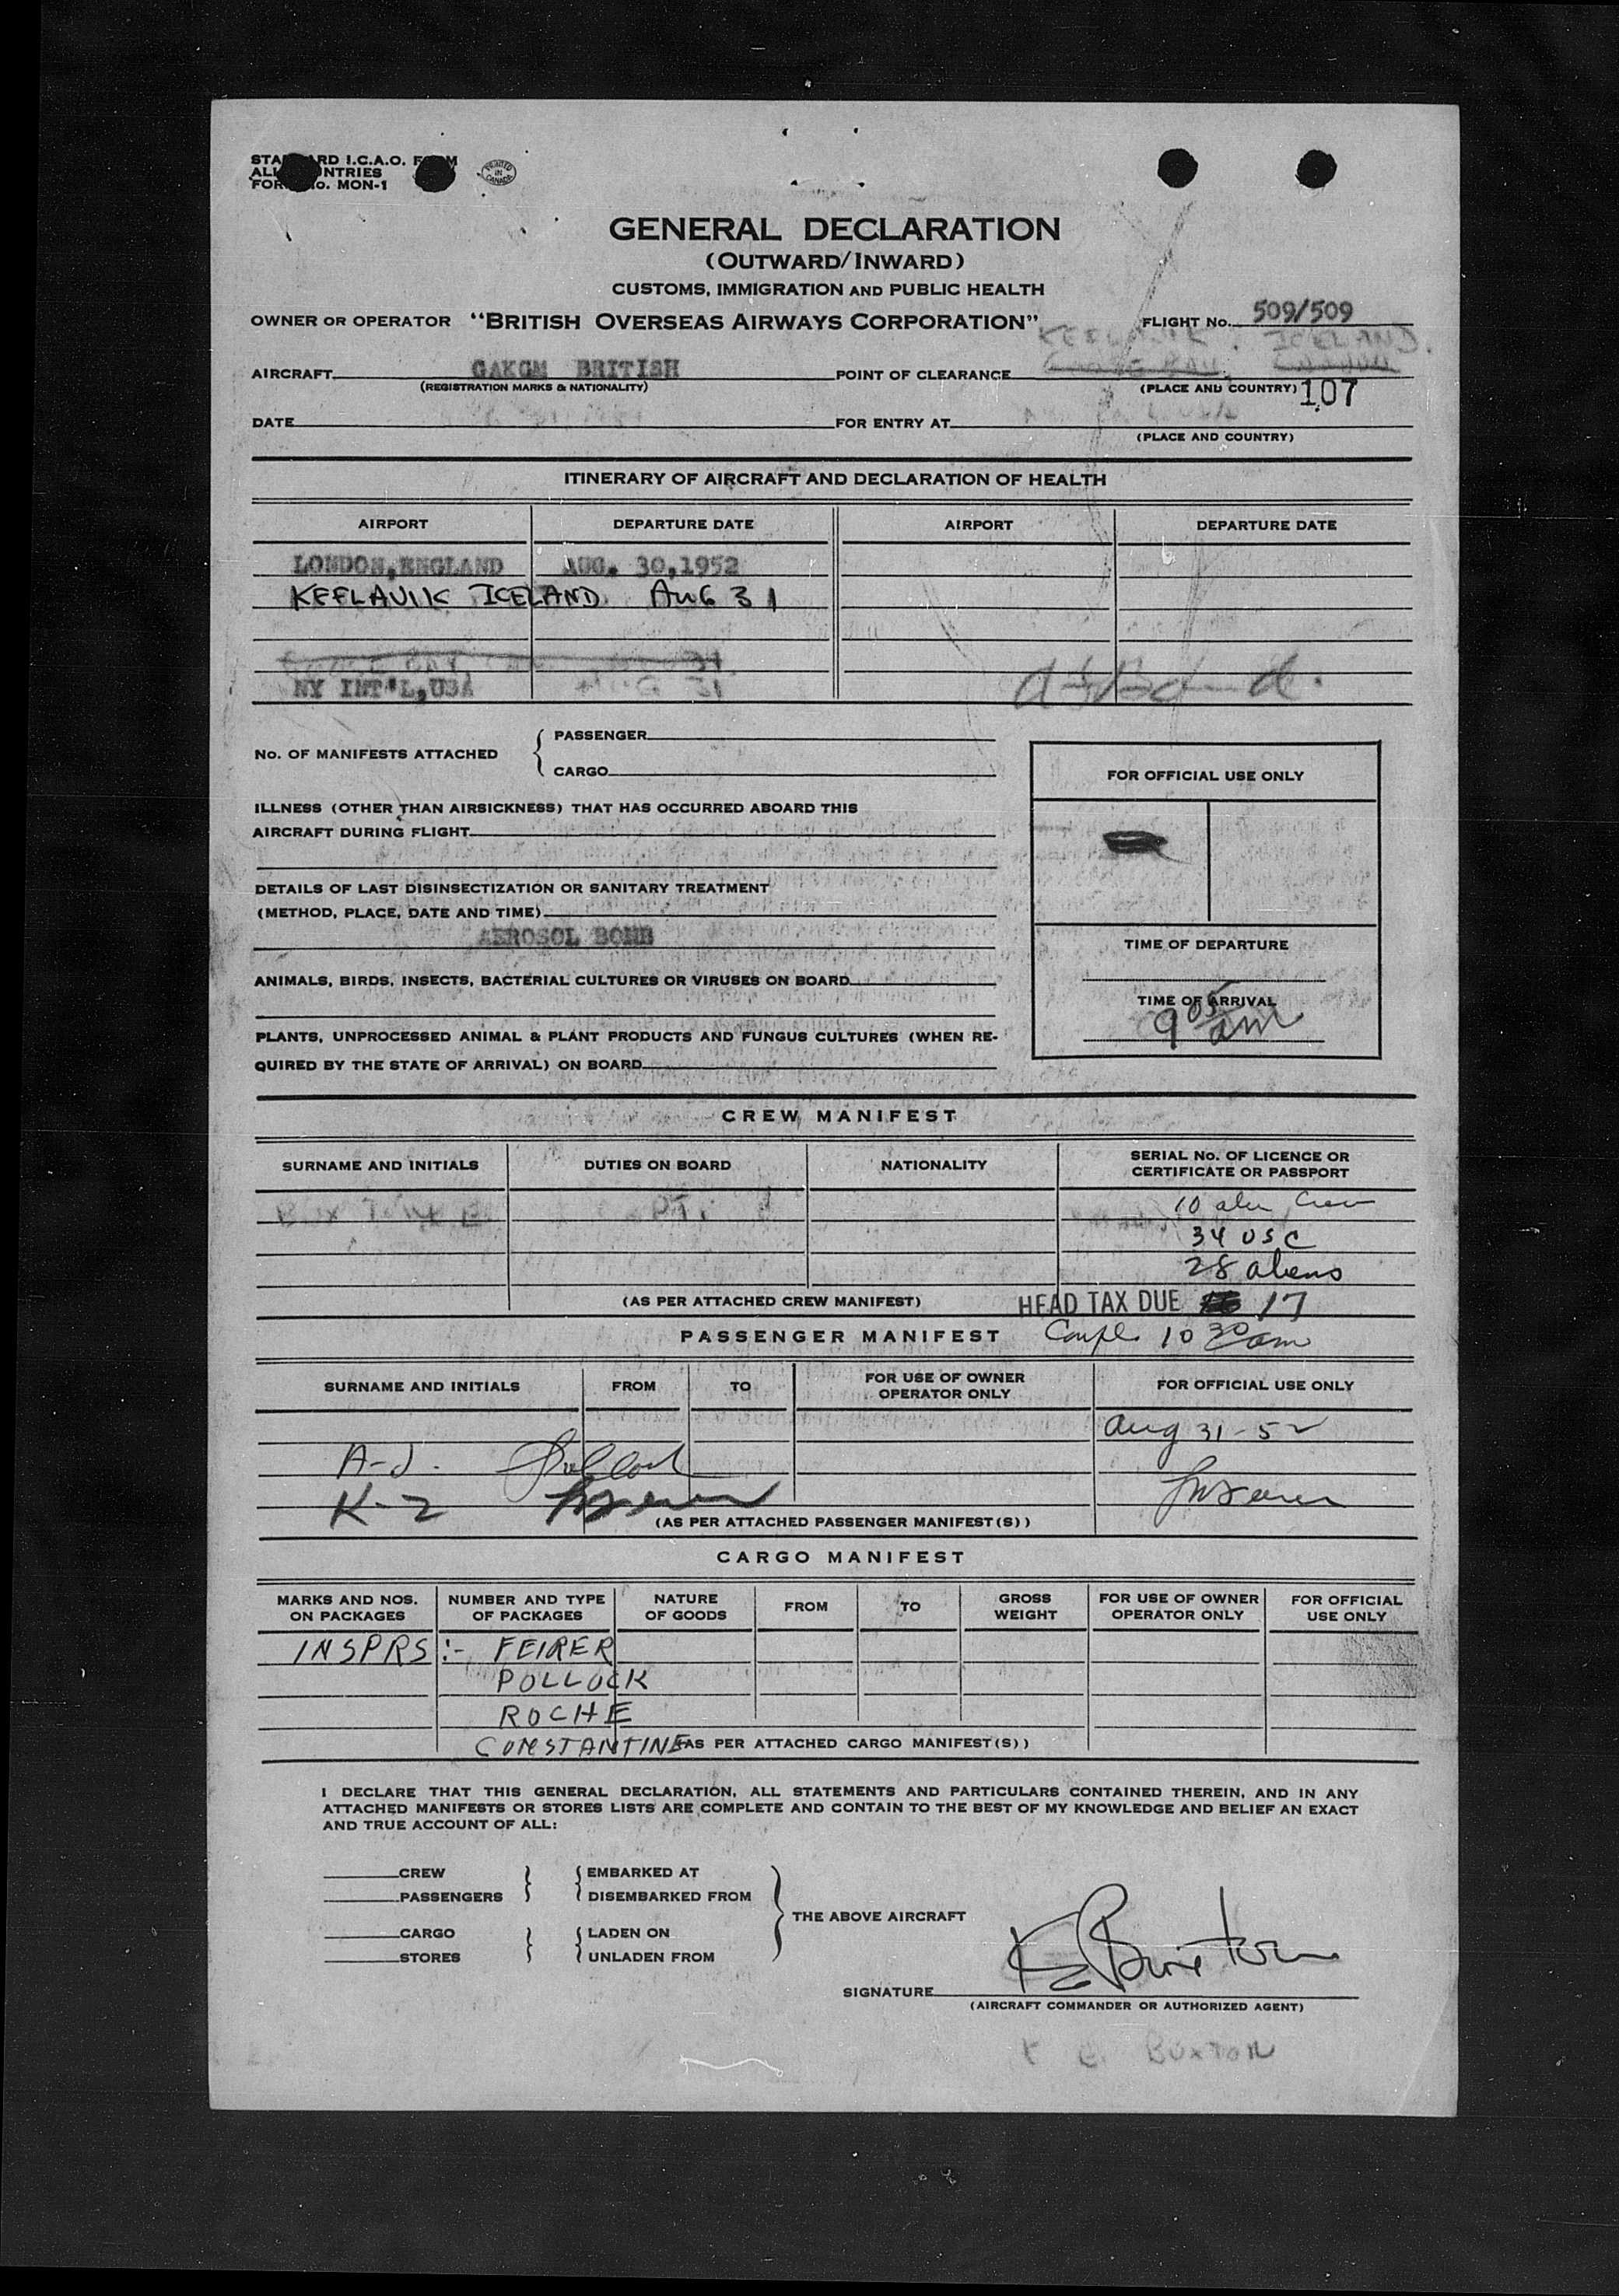 STANDARD I.C.A.O. FORM
ALL COUNTRIES
FORM No. MON-1
PRINTED IN CANADA
GENERAL DECLARATION
(OUTWARD/INWARD)
CUSTOMS, IMMIGRATION AND PUBLIC HEALTH
OWNER OR OPERATOR "BRITISH OVERSEAS AIRWAYS CORPORATION" FLIGHT No. 509/509
KEFLAVIK. ICELAND.
AIRCRAFT GAKGM BRITISH POINT OF CLEARANCE GOOSE BAY, CANADA
(REGISTRATION MARKS & NATIONALITY) (PLACE AND COUNTRY) 107
DATE FOR ENTRY AT
(PLACE AND COUNTRY)
ITINERARY OF AIRCRAFT AND DECLARATION OF HEALTH
AIRPORT DEPARTURE DATE AIRPORT DEPARTURE DATE
LONDON, ENGLAND AUG. 30, 1952
KEFLAVIK ICELAND. AUG 31
GOOSE BAY 31
NY INT'L, USA AUG 31
No. OF MANIFESTS ATTACHED { PASSENGER
CARGO
FOR OFFICIAL USE ONLY
ILLNESS (OTHER THAN AIRSICKNESS) THAT HAS OCCURRED ABOARD THIS
AIRCRAFT DURING FLIGHT
DETAILS OF LAST DISINSECTIZATION OR SANITARY TREATMENT
(METHOD, PLACE, DATE AND TIME)
AEROSOL BOMB
TIME OF DEPARTURE
ANIMALS, BIRDS, INSECTS, BACTERIAL CULTURES OR VIRUSES ON BOARD
TIME OF ARRIVAL
9 05 am
PLANTS, UNPROCESSED ANIMAL & PLANT PRODUCTS AND FUNGUS CULTURES (WHEN RE-
QUIRED BY THE STATE OF ARRIVAL) ON BOARD
CREW MANIFEST
SURNAME AND INITIALS DUTIES ON BOARD NATIONALITY SERIAL No. OF LICENCE OR
CERTIFICATE OR PASSPORT
BUXTON K E. 10 alien Crew
34 USC
28 aliens
(AS PER ATTACHED CREW MANIFEST) HEAD TAX DUE 17
PASSENGER MANIFEST Compl. 10 30 am
SURNAME AND INITIALS FROM TO FOR USE OF OWNER
OPERATOR ONLY FOR OFFICIAL USE ONLY
Aug 31-52
A-J. Pollock
K-Z
(AS PER ATTACHED PASSENGER MANIFEST(S))
CARGO MANIFEST
MARKS AND NOS.
ON PACKAGES NUMBER AND TYPE
OF PACKAGES NATURE
OF GOODS FROM TO GROSS
WEIGHT FOR USE OF OWNER
OPERATOR ONLY FOR OFFICIAL
USE ONLY
INSPRS :- FEIRER
POLLOCK
ROCHE
CONSTANTINE (AS PER ATTACHED CARGO MANIFEST(S))
I DECLARE THAT THIS GENERAL DECLARATION, ALL STATEMENTS AND PARTICULARS CONTAINED THEREIN, AND IN ANY
ATTACHED MANIFESTS OR STORES LISTS ARE COMPLETE AND CONTAIN TO THE BEST OF MY KNOWLEDGE AND BELIEF AN EXACT
AND TRUE ACCOUNT OF ALL:
CREW EMBARKED AT
PASSENGERS DISEMBARKED FROM
THE ABOVE AIRCRAFT
CARGO LADEN ON
STORES UNLADEN FROM
K E Buxton
SIGNATURE
(AIRCRAFT COMMANDER OR AUTHORIZED AGENT)
K E. BUXTON